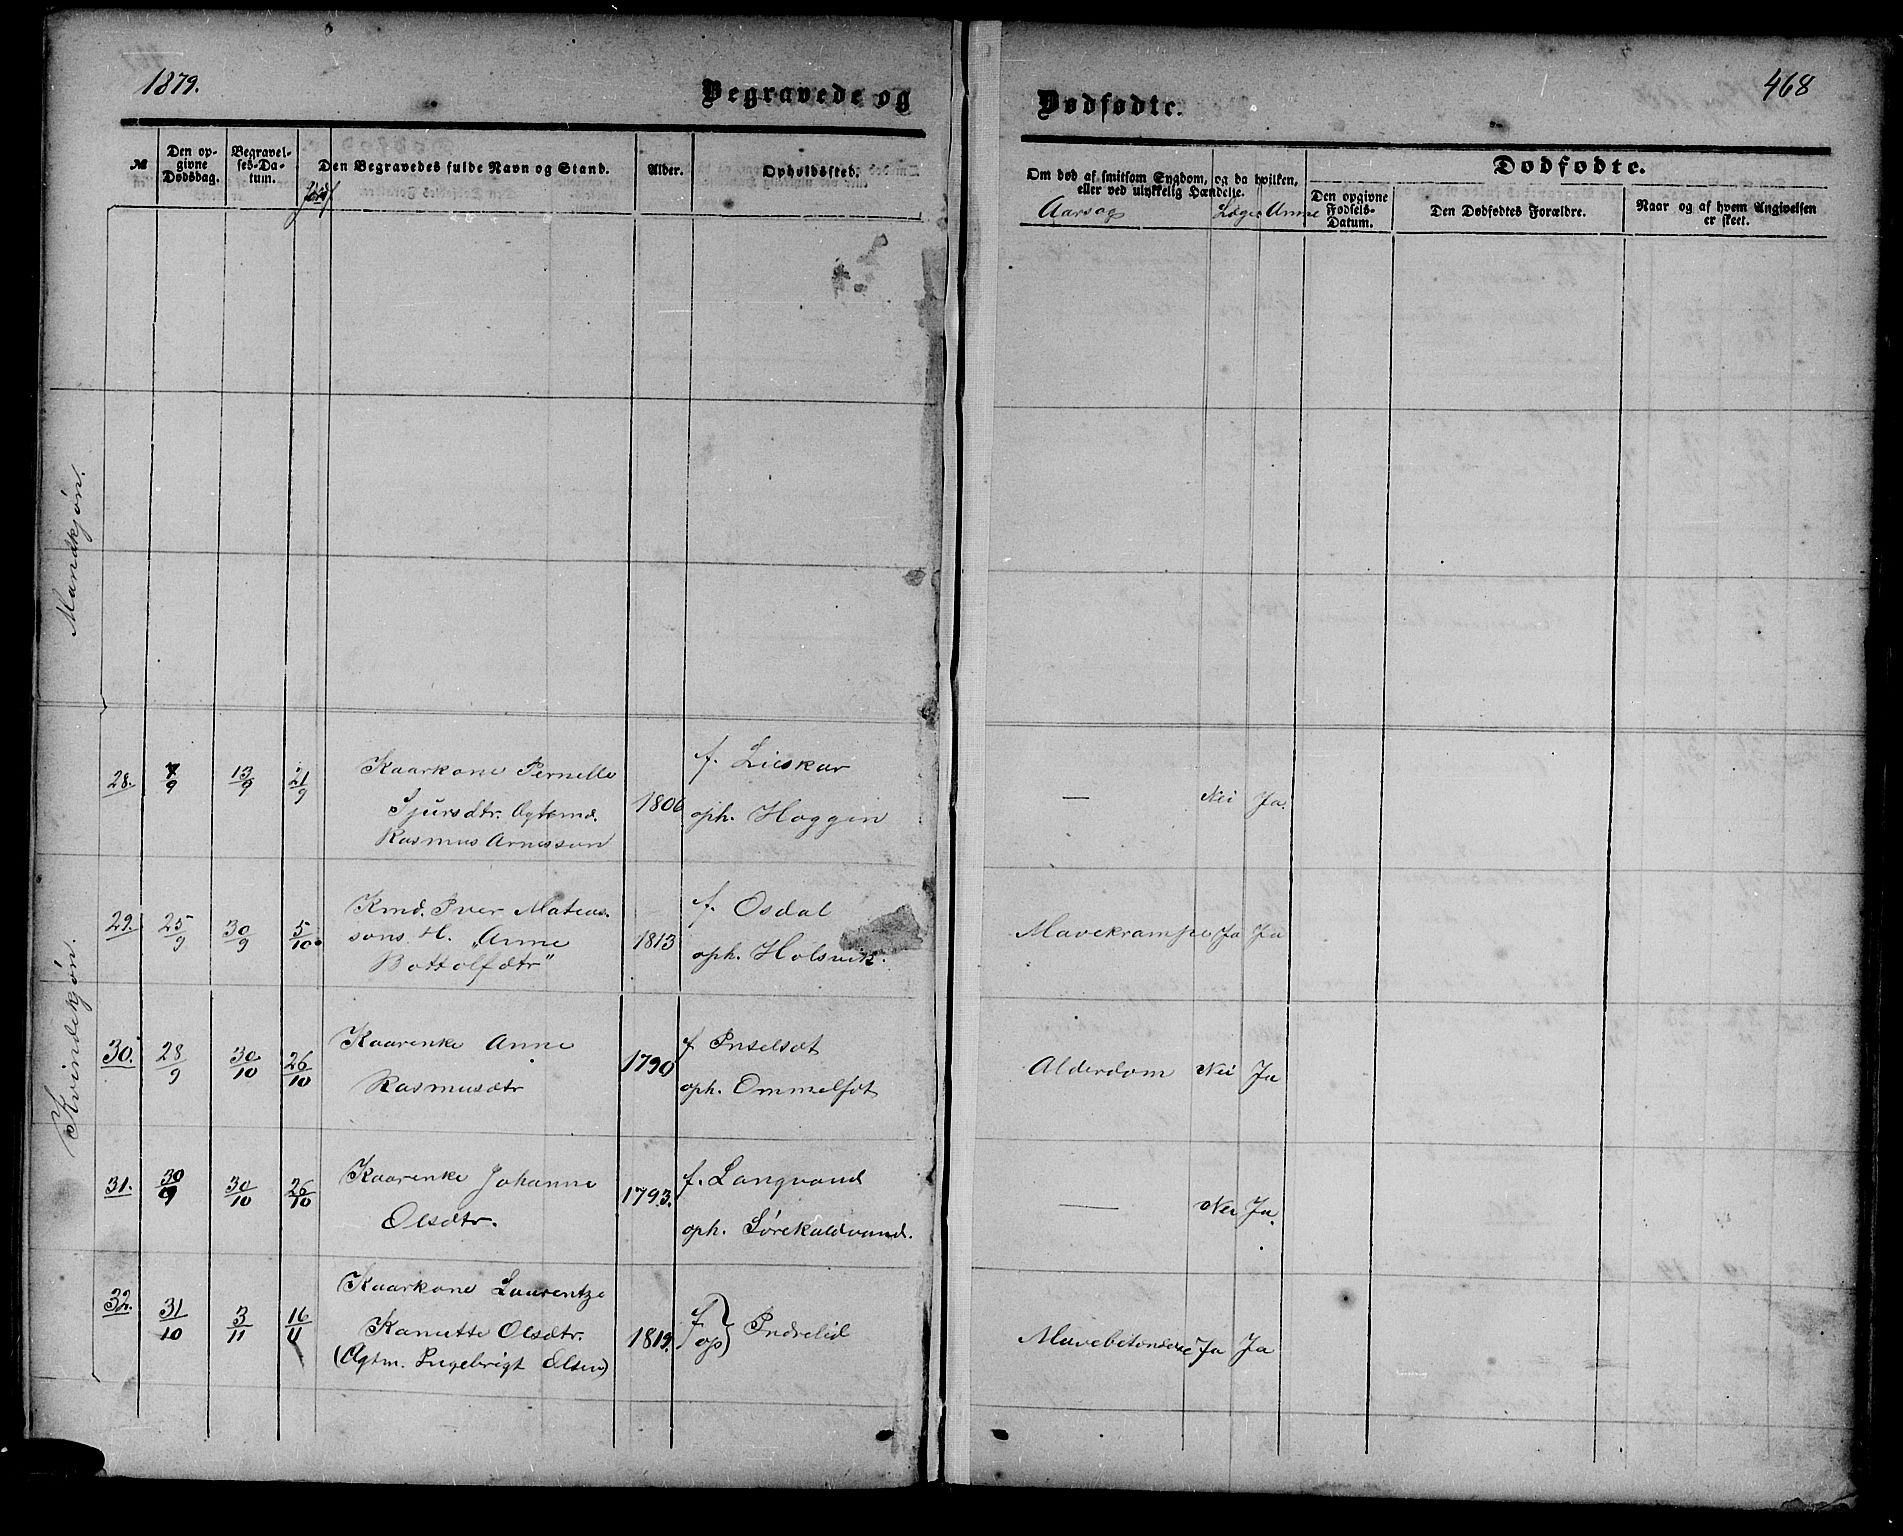 1879.
Begravede og
Dødfødte.
468
№
Den opgivne Dødsdag.
Begravelses-Datum.
Jordf
Den Begravedes fulde Navn og Stand.
Alder.
Opholdssted.
Om død af smitsom Sygdom, og da hvilken,
eller ved ulykkelig Hændelse.
Aarsag Læge Anme
Dødfødte.
Den opgivne Fødsels-Datum.
Den Dødfødtes Forældre.
Naar og af hvem Angivelsen er skeet.
Mandkjøn.
Kvindekjøn.
28. 7/9 13/9 21/9 Kaarkone Pernelle 1806 f. Lieskar
Sjursdtr. Ogtemd. oph. Haggen — Nei Ja.
Rasmus Arnesson
29. 25/9 30/9 5/10. Kmd. Iver Mateas- 1813 f. Osdal
sons H. "Anne oph. Holsvik. Mavekrampe Ja Ja
Bottolfdtr"
30. 28/9 30/10 26/10 Kaarenke Anne 1790 f Inselsæt
Rasmusdtr oph. Ommelfot Alderdom Nei Ja
31. 30/9 30/10 26/10 Kaarenke Johanne 1793. f. Langvand
Olsdtr. oph. Sørekaldvand. — Nei Ja.
32. 31/10 3/11 16/11 Kaarkone Laurentze 1819.
Kanutte Olsdtr. f op } Indrelid Mavebetændelse Ja Ja
(Ogtm. Ingebrigt Elsen)